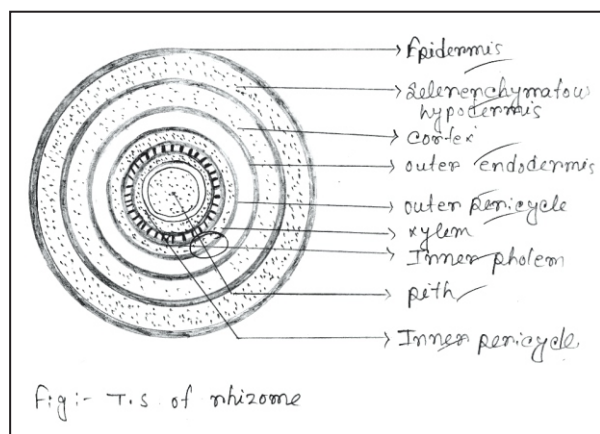 Epidermis
Selerenchymatous
hypodermis
cortex
outer endodermis
outer pericycle
xylem
Inner pholem
pith
Inner pericycle
Fig:- T.S of rhizome